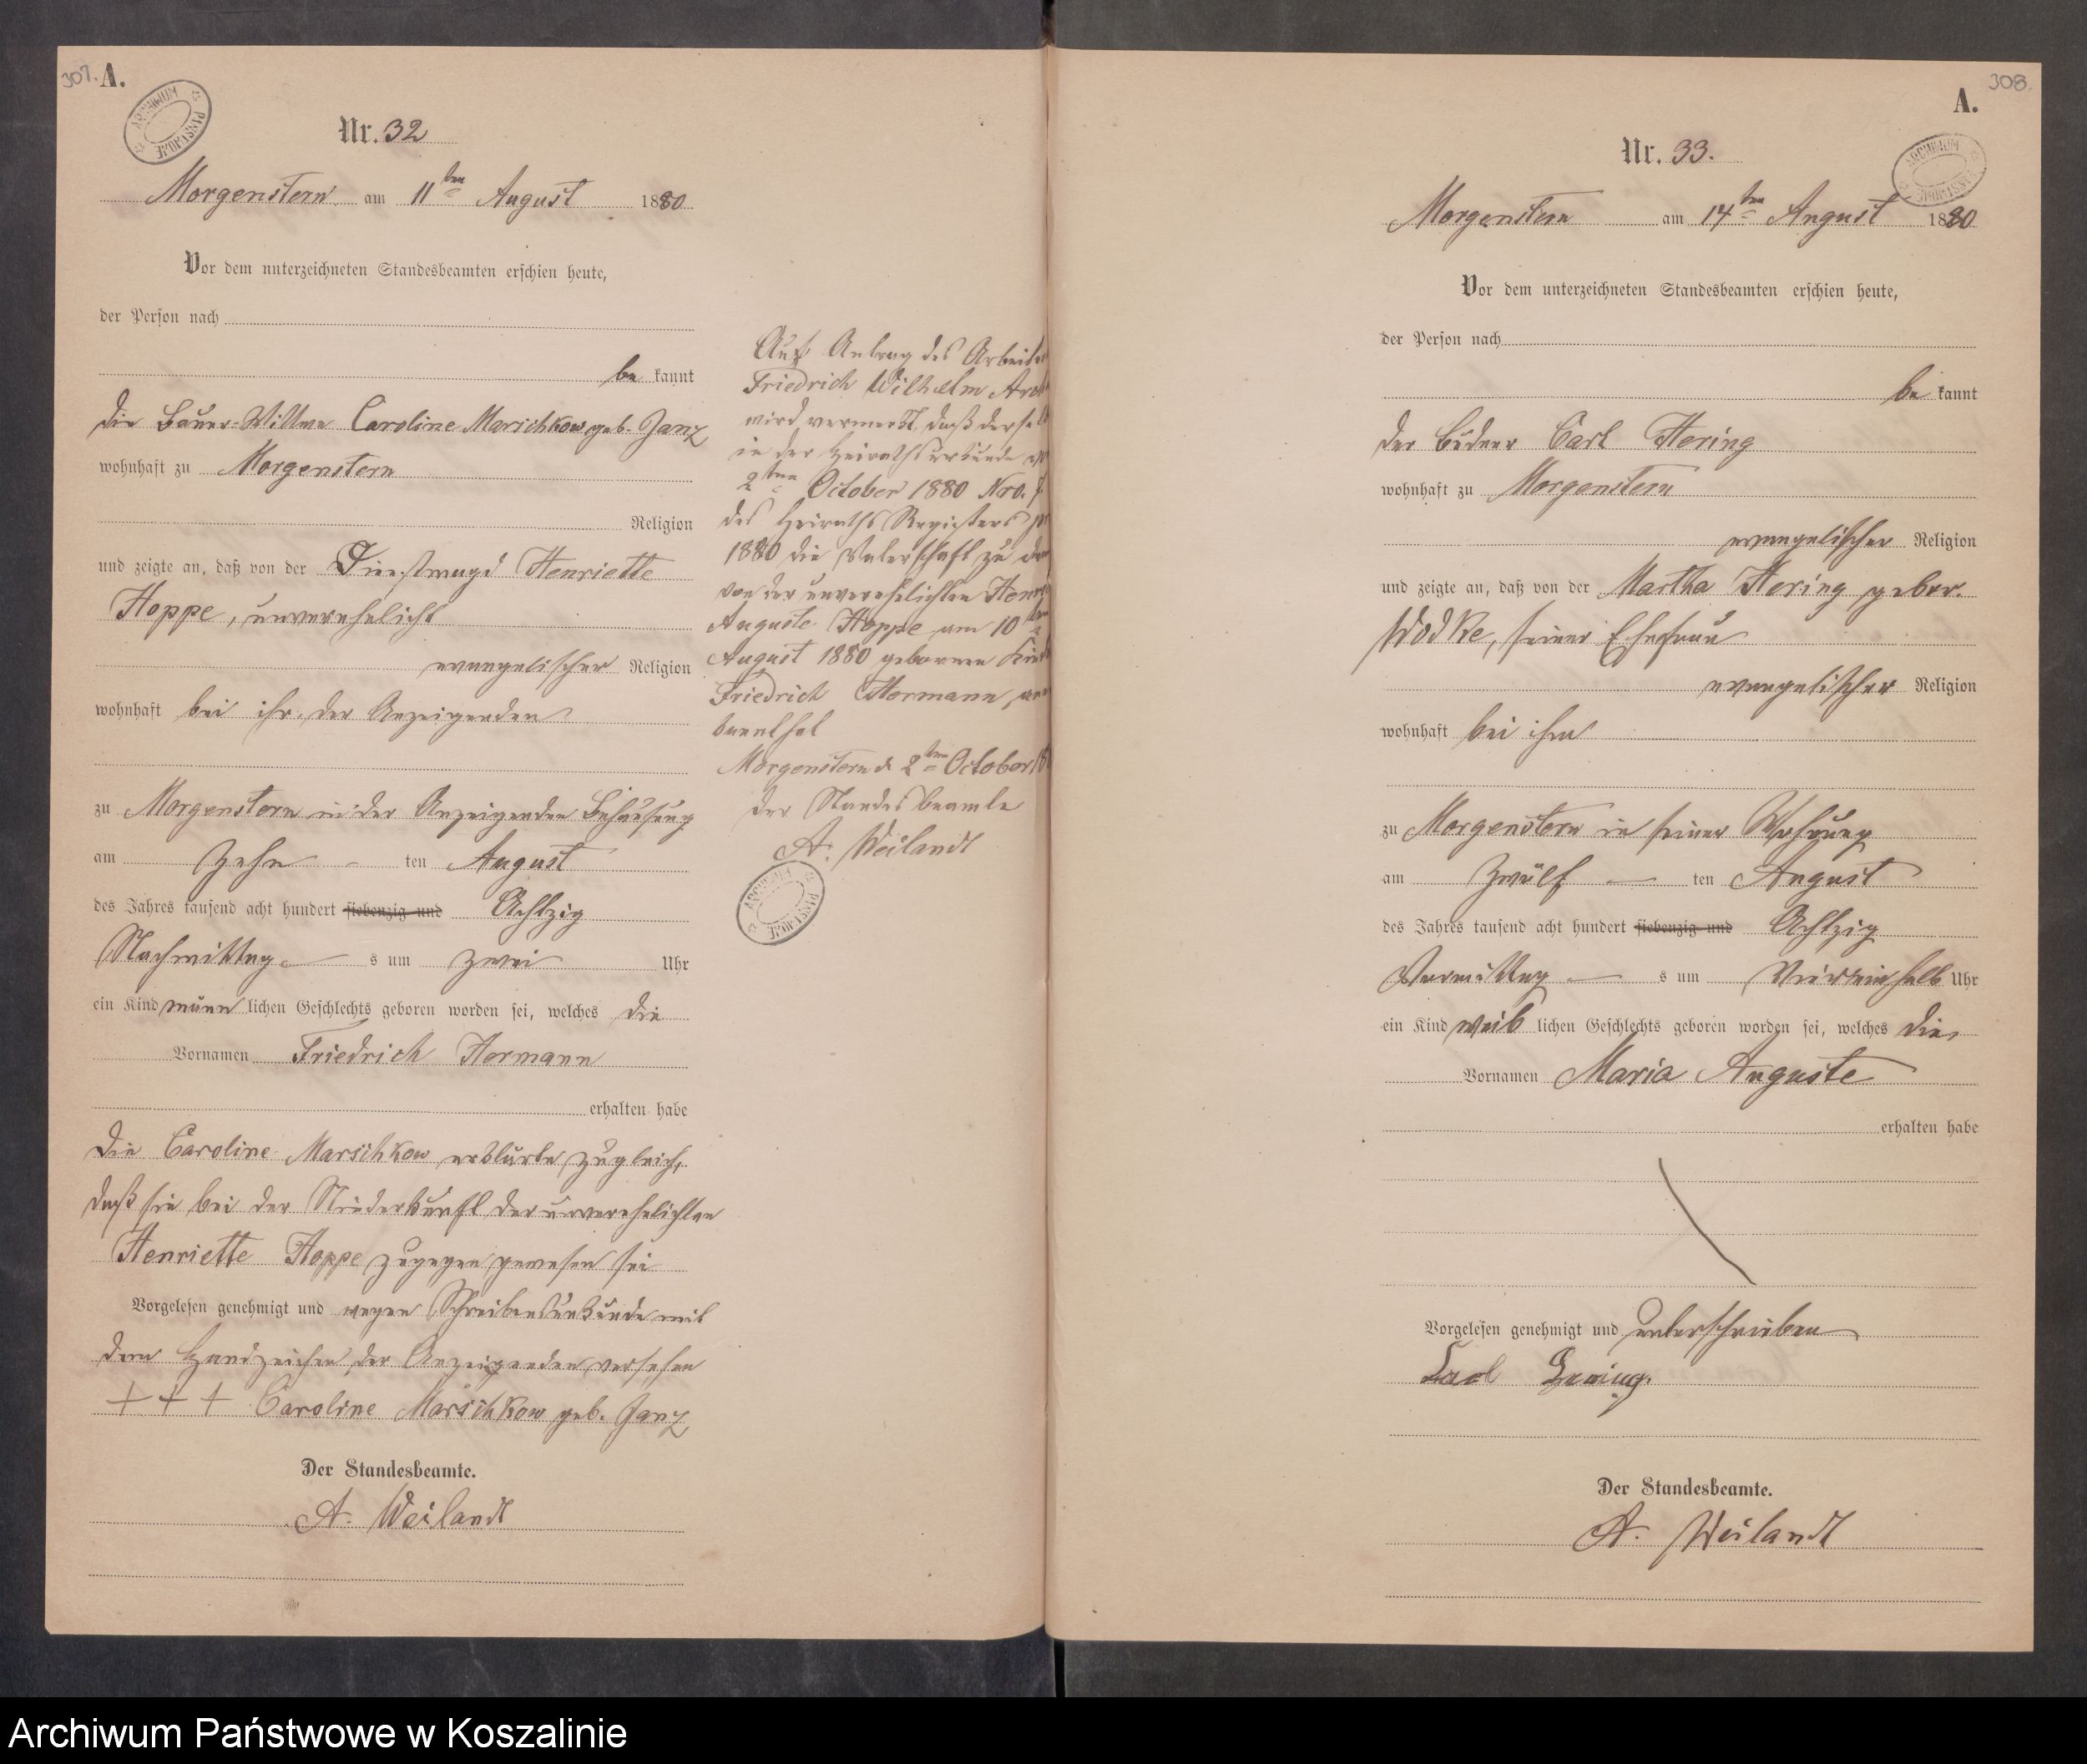 307. A.
ARCHIWUM PAŃSTWOWE
Nr. 32
Morgenstern am 11ten August 1880
Vor dem unterzeichneten Standesbeamten erschien heute,
der Person nach
be kannt
die Bauer-Wittwe Caroline Marschkow geb. Janz
wohnhaft zu Morgenstern
Religion
und zeigte an, daß von der Dienstmagd Henriette
Hoppe, unverehelicht
evangelischer Religion
wohnhaft bei ihr, der Anzeigenden
zu Morgenstern in der Anzeigenden Behausung
am zehn ten August
des Jahres tausend acht hundert siebenzig und Achtzig
Nachmittag s um zwei Uhr
ein Kind männ lichen Geschlechts geboren worden sei, welches die
Vornamen Friedrich Hermann
erhalten habe
Die Caroline Marschkow erklärte zugleich,
daß sie bei der Niederkunft der unverehelichten
Henriette Hoppe zugegen gewesen sei
Vorgelesen genehmigt und wegen Schreibensunkunde mit
dem Handzeichen der Anzeigenden versehen
+ + + Caroline Marschkow geb. Janz
Der Standesbeamte.
A. Weilandt
Auf Antrag des Arbeiter
Friedrich Wilhelm
wird vermerkt, daß dersel
in der Heirathsurkunde
2ten October 1880 Nro.
des Heiraths Registers
1880 die Vaterschaft zu
von der unverehelichten
Auguste Hoppe am 10ten
August 1880 geborenen
Friedrich Hermann
kannt hat
Morgenstern d. 2ten October
Der Standesbeamte
A. Weilandt
ARCHIWUM PAŃSTWOWE
308.
A.
ARCHIWUM PAŃSTWOWE
Nr. 33.
Morgenstern am 14ten August 1880
Vor dem unterzeichneten Standesbeamten erschien heute,
der Person nach
be kannt
der Büdner Carl Hering
wohnhaft zu Morgenstern
evangelischer Religion
und zeigte an, daß von der Martha Hering gebor.
Wodke, seiner Ehefrau
evangelischer Religion
wohnhaft bei ihm
zu Morgenstern in seiner Wohnung
am zwölf ten August
des Jahres tausend acht hundert siebenzig und Achtzig
Vormittag s um Viereinhalb Uhr
ein Kind weib lichen Geschlechts geboren worden sei, welches die
Vornamen Maria Auguste
erhalten habe
Vorgelesen genehmigt und unterschrieben
Carl Hering.
Der Standesbeamte.
A. Weilandt
Archiwum Państwowe w Koszalinie